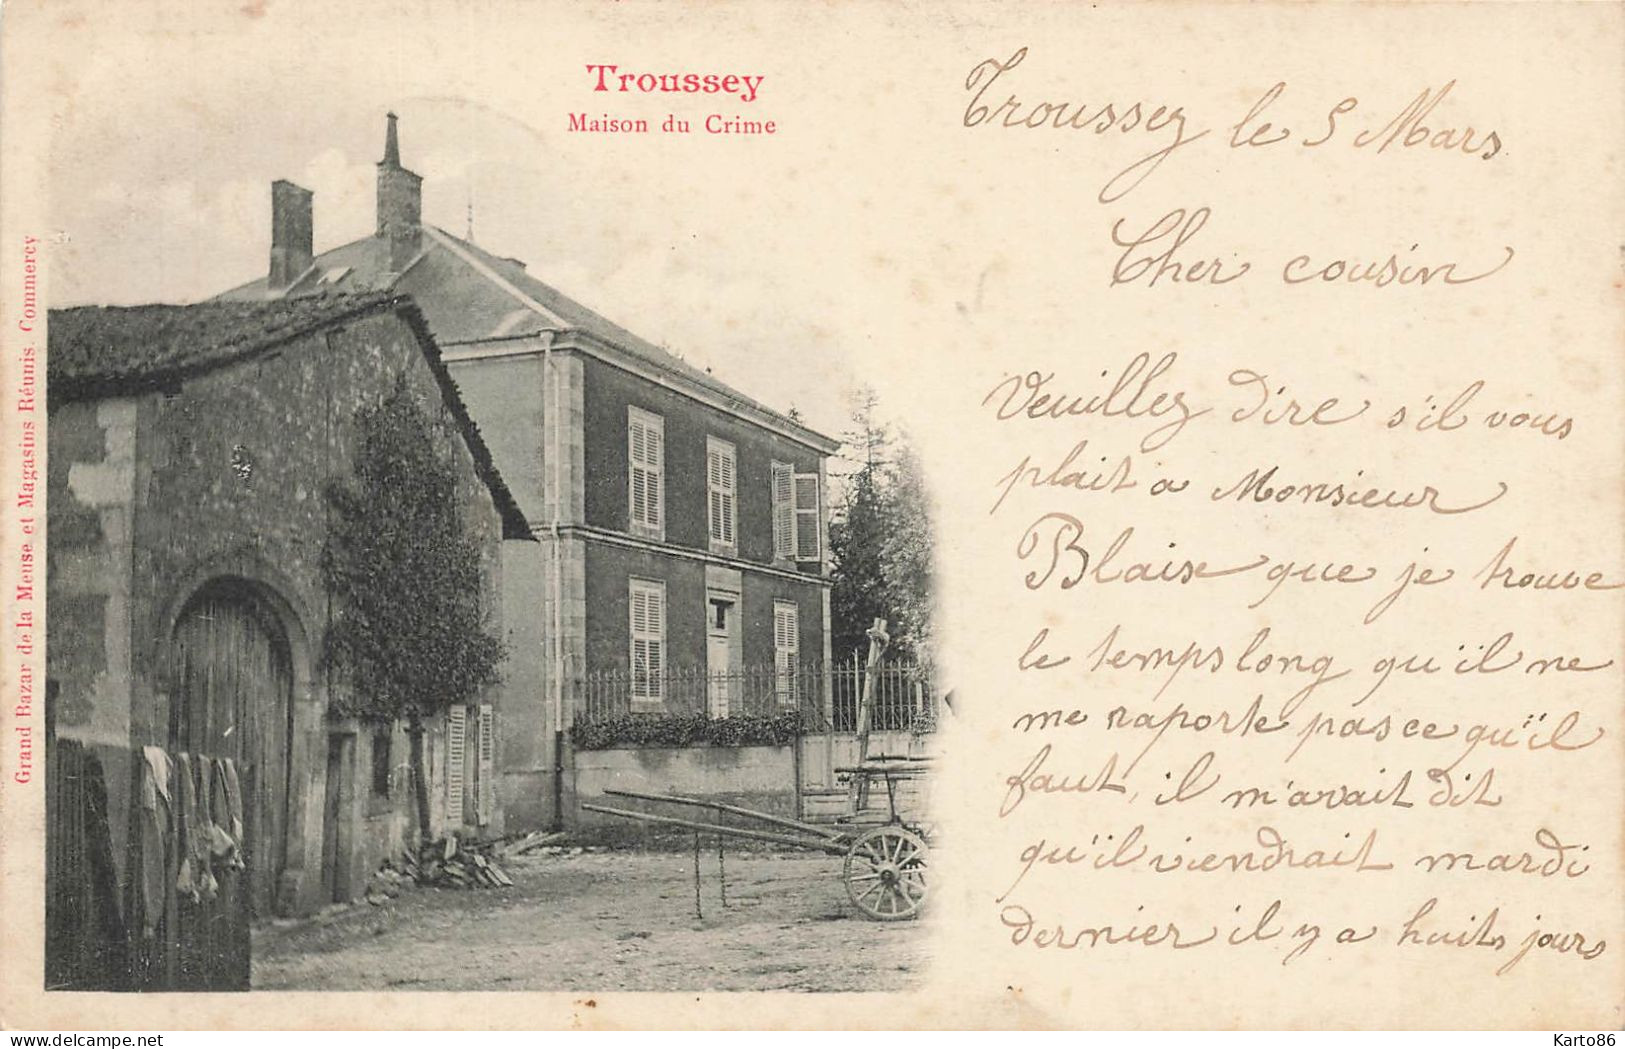 Troussey
Maison du Crime
Grand Bazar de la Meuse et Magasins Réunis. Commercy
Troussey le 5 Mars
Cher cousin
Veuillez dire s'il vous
plait a Monsieur
Blaise que je trouve
le temps long qu'il ne
me raporte pas ce qu'il
faut, il m'avait dit
qu'il viendrait mardi
dernier il y a huits jours
delcampe.net
Karto86